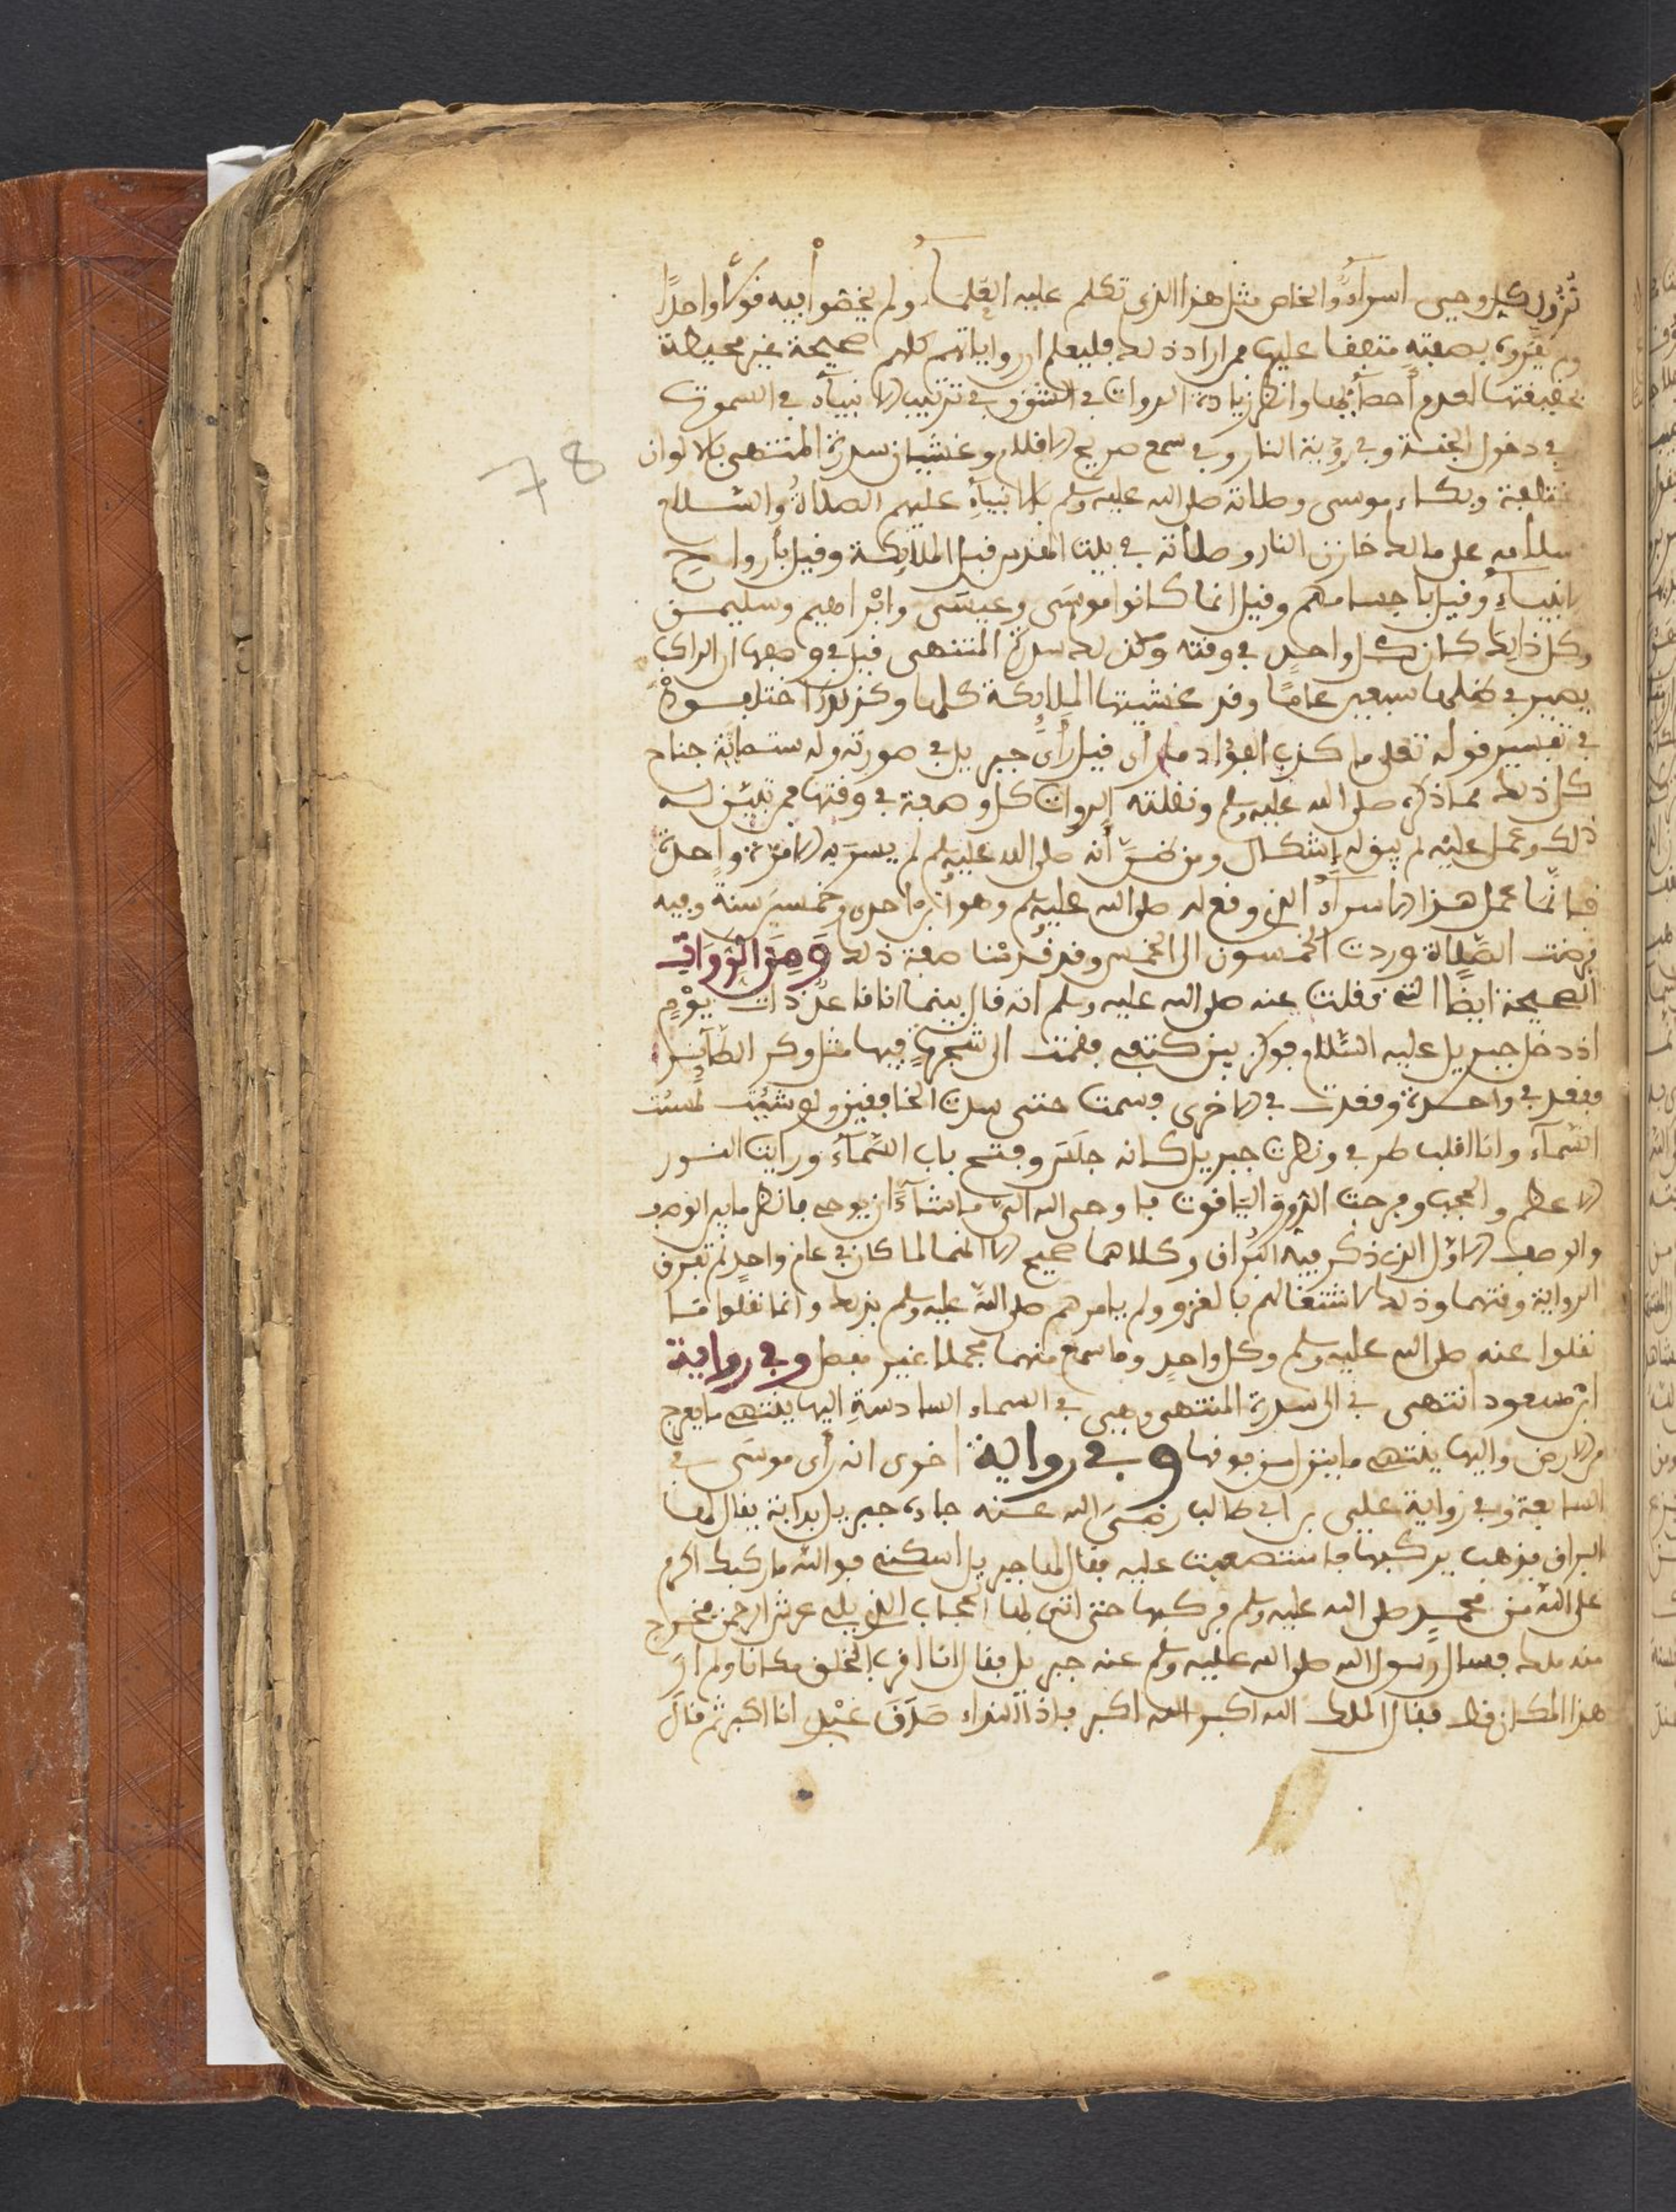 نزول كل وحي اسراء والخاص مثل هذا الذى تكلم عليه العلماء ولم يخصوا فيه قولا واحدا
ولم بصفته متفقا عليها فمن اراد ذلك فليعلم ان رواياتهم كلهم صحيحة غير محيطة
بحقيقتها لعدم وانظر زيادة الروات في الشق وفي ترتيب الانبياء في السموات
في دخول الجنة وفي رؤية النار وفي سمع صريج الاقلام وغشيان سدرة المنتهى بالالوان
مختلفة وبكاء موسى وصلاته صلى الله عليه وسلم بالانبياء عليهم الصلاة والسلام
سلامه على مالك خازن النار وصلاته في بيت المقدس قيل الملائكة وقيل بأرواح
الانبياء وقيل باجسامهم وقيل انما كانوا موسى وعيسى وابراهيم وسليمن
وكل ذلك كان كل واحد في وقته وكذلك سدرة المنتهى قيل في وصفها ان الراكب
يصير في ظلها سبعين عاما وقد غشيتها الملائكة كلها وكذلك اختلفوا
في تفسير قوله تعلى ما كذب الفؤاد ما رأى قيل رأى جبريل في صورته وله ستمائة جناح
كل ذلك مما ذكره صلى الله عليه وسلم ونقلته الروات كل وصفة في وقتها فمن تبين له
ذلك وعمل عليه لم يبق له إشكال ومن ظن أنه صلى الله عليه وسلم لم يسر به الا مرة واحدة
فإنما عمل هذا الاسراء الذي وقع له صلى الله عليه وسلم وهو ابن احدى وخمسين سنة وفيه
فرضت الصلاة وردت الخمسون الى الخمس وقد قدمنا صفة ذلك ومن الروايات
الصحيحة ايضا التي نقلت عنه صلى الله عليه وسلم انه قال بينما انا قاعد ذات يوم
اذ دخل جبريل عليه السلام فوكز بين كتفي فقمت الى شجرة فيها مثل وكر الطائر
فقعد في واحدة وقعدت في الاخرى فسمت حتى سدت الخافقين ولو شئت لمسست
السماء وانا اقلب طرفي ونظرت جبريل كانه حلس وفتح باب السماء ورايت النور
الاعظم والحجب وفرجت الدر والياقوت فاوحى الله الي ما شاء ان يوحي فانظر ما بين الوصف
والوصف الاول الذي ذكر فيه البراق وكلاهما صحيح الا انهما لما كان في عام واحد لم تفرق
الرواية وقتهما وذلك لاشتغالهم بالغزو ولم يامرهم صلى الله عليه وسلم بذلك وانما نقلوا ما
نقلوا عنه صلى الله عليه وسلم وكل واحد وما سمع منهما مجملا غير مفصل وفي رواية
ابن مسعود انتهى بي الى سدرة المنتهى وهي في السماء السادسة اليها ينتهى ما يعرج
من الارض واليها ينتهى ما ينزل من فوقها وفي رواية اخرى انه رأى موسى في
السابعة وفي رواية على بن ابي طالب رضي الله عنه جاءه جبريل بدابة يقال لها
البراق فذهب يركبها فاستصعبت عليه فقال لها جبريل اسكنى فوالله ما ركبك اكرم
على الله من محمد صلى الله عليه وسلم فركبها حتى اتى بها الحجاب الذي يلى عرش الرحمن فخرج
منه ملك فسال رسول الله صلى الله عليه وسلم عنه جبريل فقال انا اقرب الخلق مكانا ولم ار
هذا المكان قط فقال الملك الله اكبر الله اكبر فاذا النداء صدق عبدي انا اكبر ثم قال
78